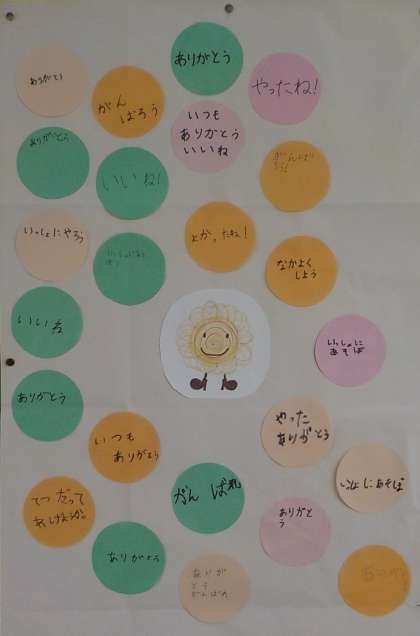 ありがとう
ありがとう
がん
ばろう
やったね!
いつも
ありがとう
いいね
ありがとう
いいね!
がんばろう!
いっしょにやろう
よかったね!
なかよく
しよう
いいね
いっしょに
あそぼ
ありがとう
いつも
ありがとう
やった
ありがとう
いっしょにあそぼ
てつだって
あげようか。
がんばれ
ありがと
う
ありがとう
ありが
とう
がんばれ